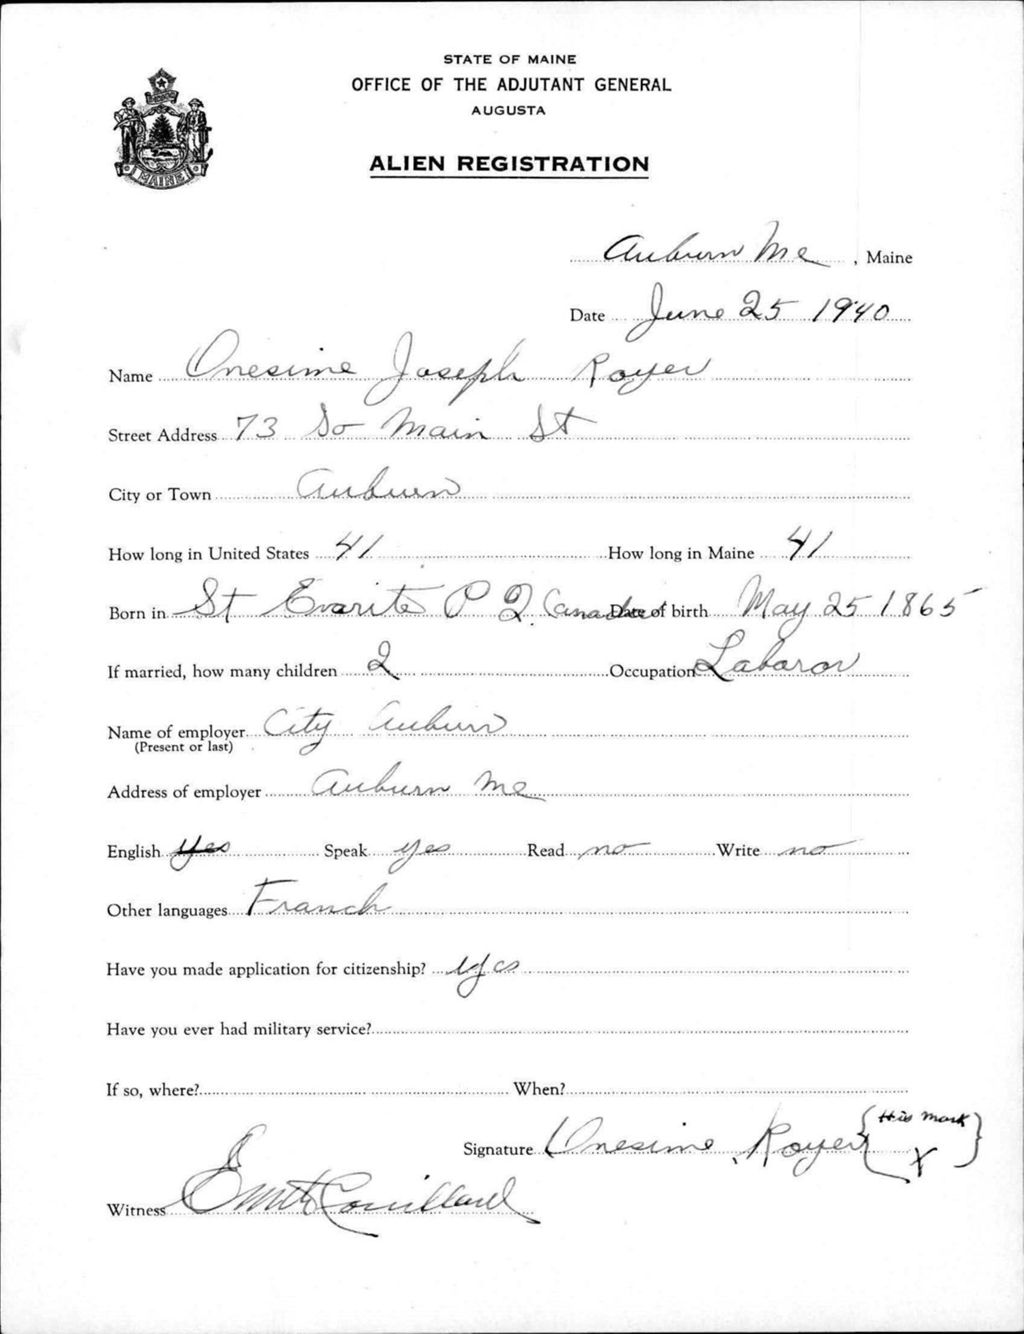 STATE OF MAINE
OFFICE OF THE ADJUTANT GENERAL
AUGUSTA
ALIEN REGISTRATION
MAINE
Auburn Me, Maine
Date June 25 1940
Name Onesime Joseph Royer
Street Address 73 So Main St
City or Town Auburn
How long in United States 41 How long in Maine 41
Born in St Evarite P Q. Canada Date of birth May 25 1865
If married, how many children 2 Occupation Laboror
Name of employer City Auburn
(Present or last)
Address of employer Auburn Me
English yes Speak yes Read no Write no
Other languages Franch
Have you made application for citizenship? yes
Have you ever had military service?
If so, where? When?
his mark
Signature Onesime Royer X
Witness Couillard